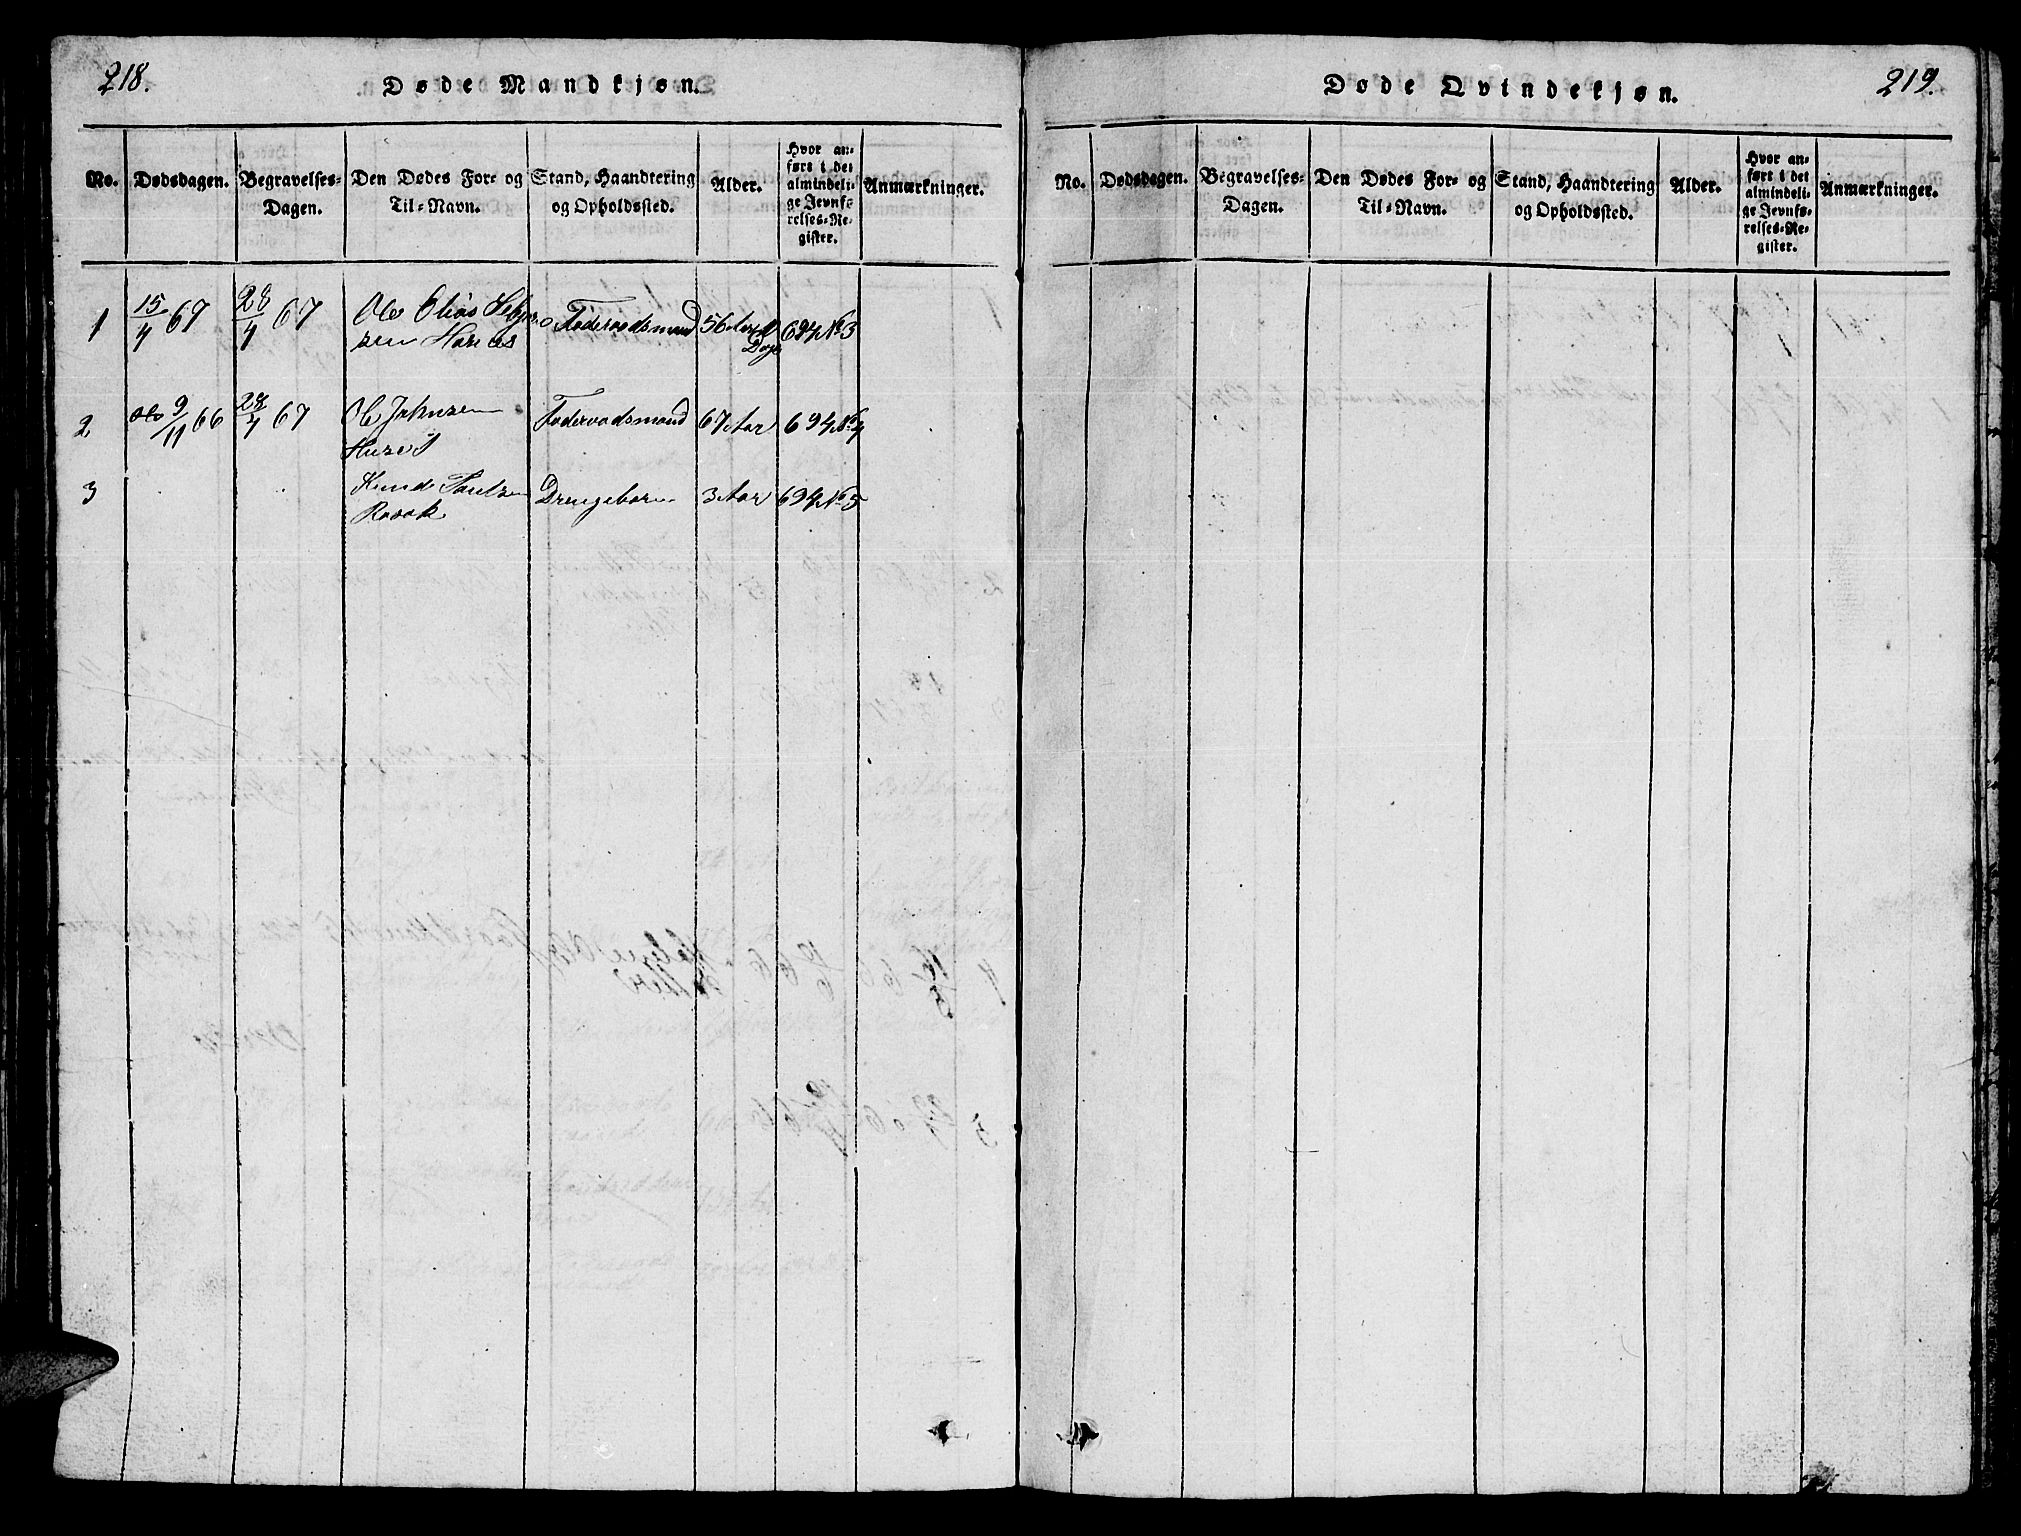 218.
Døde Mandkjøn.
No. Dødsdagen. Begravelses-Dagen. Den Dødes For- og Til-Navn. Stand, Haandtering og Opholdssted. Alder. Hvor anført i det almindelige Jevnførelses-Register. Anmærkninger.
1 15/4 67 28/4 67 Ole Elias 56 Aar Dage 694 No 3
2 9/11 66 28/4 67 Ole Johnsen Foderaadsmand 67 Aar 694 No 4
3 Knud Drengebarn 3 Aar 694 No 5
219.
Døde Qvindekjøn.
No. Dødsdagen. Begravelses-Dagen. Den Dødes For- og Til-Navn. Stand, Haandtering og Opholdssted. Alder. Hvor anført i det almindelige Jevnførelses-Register. Anmærkninger.